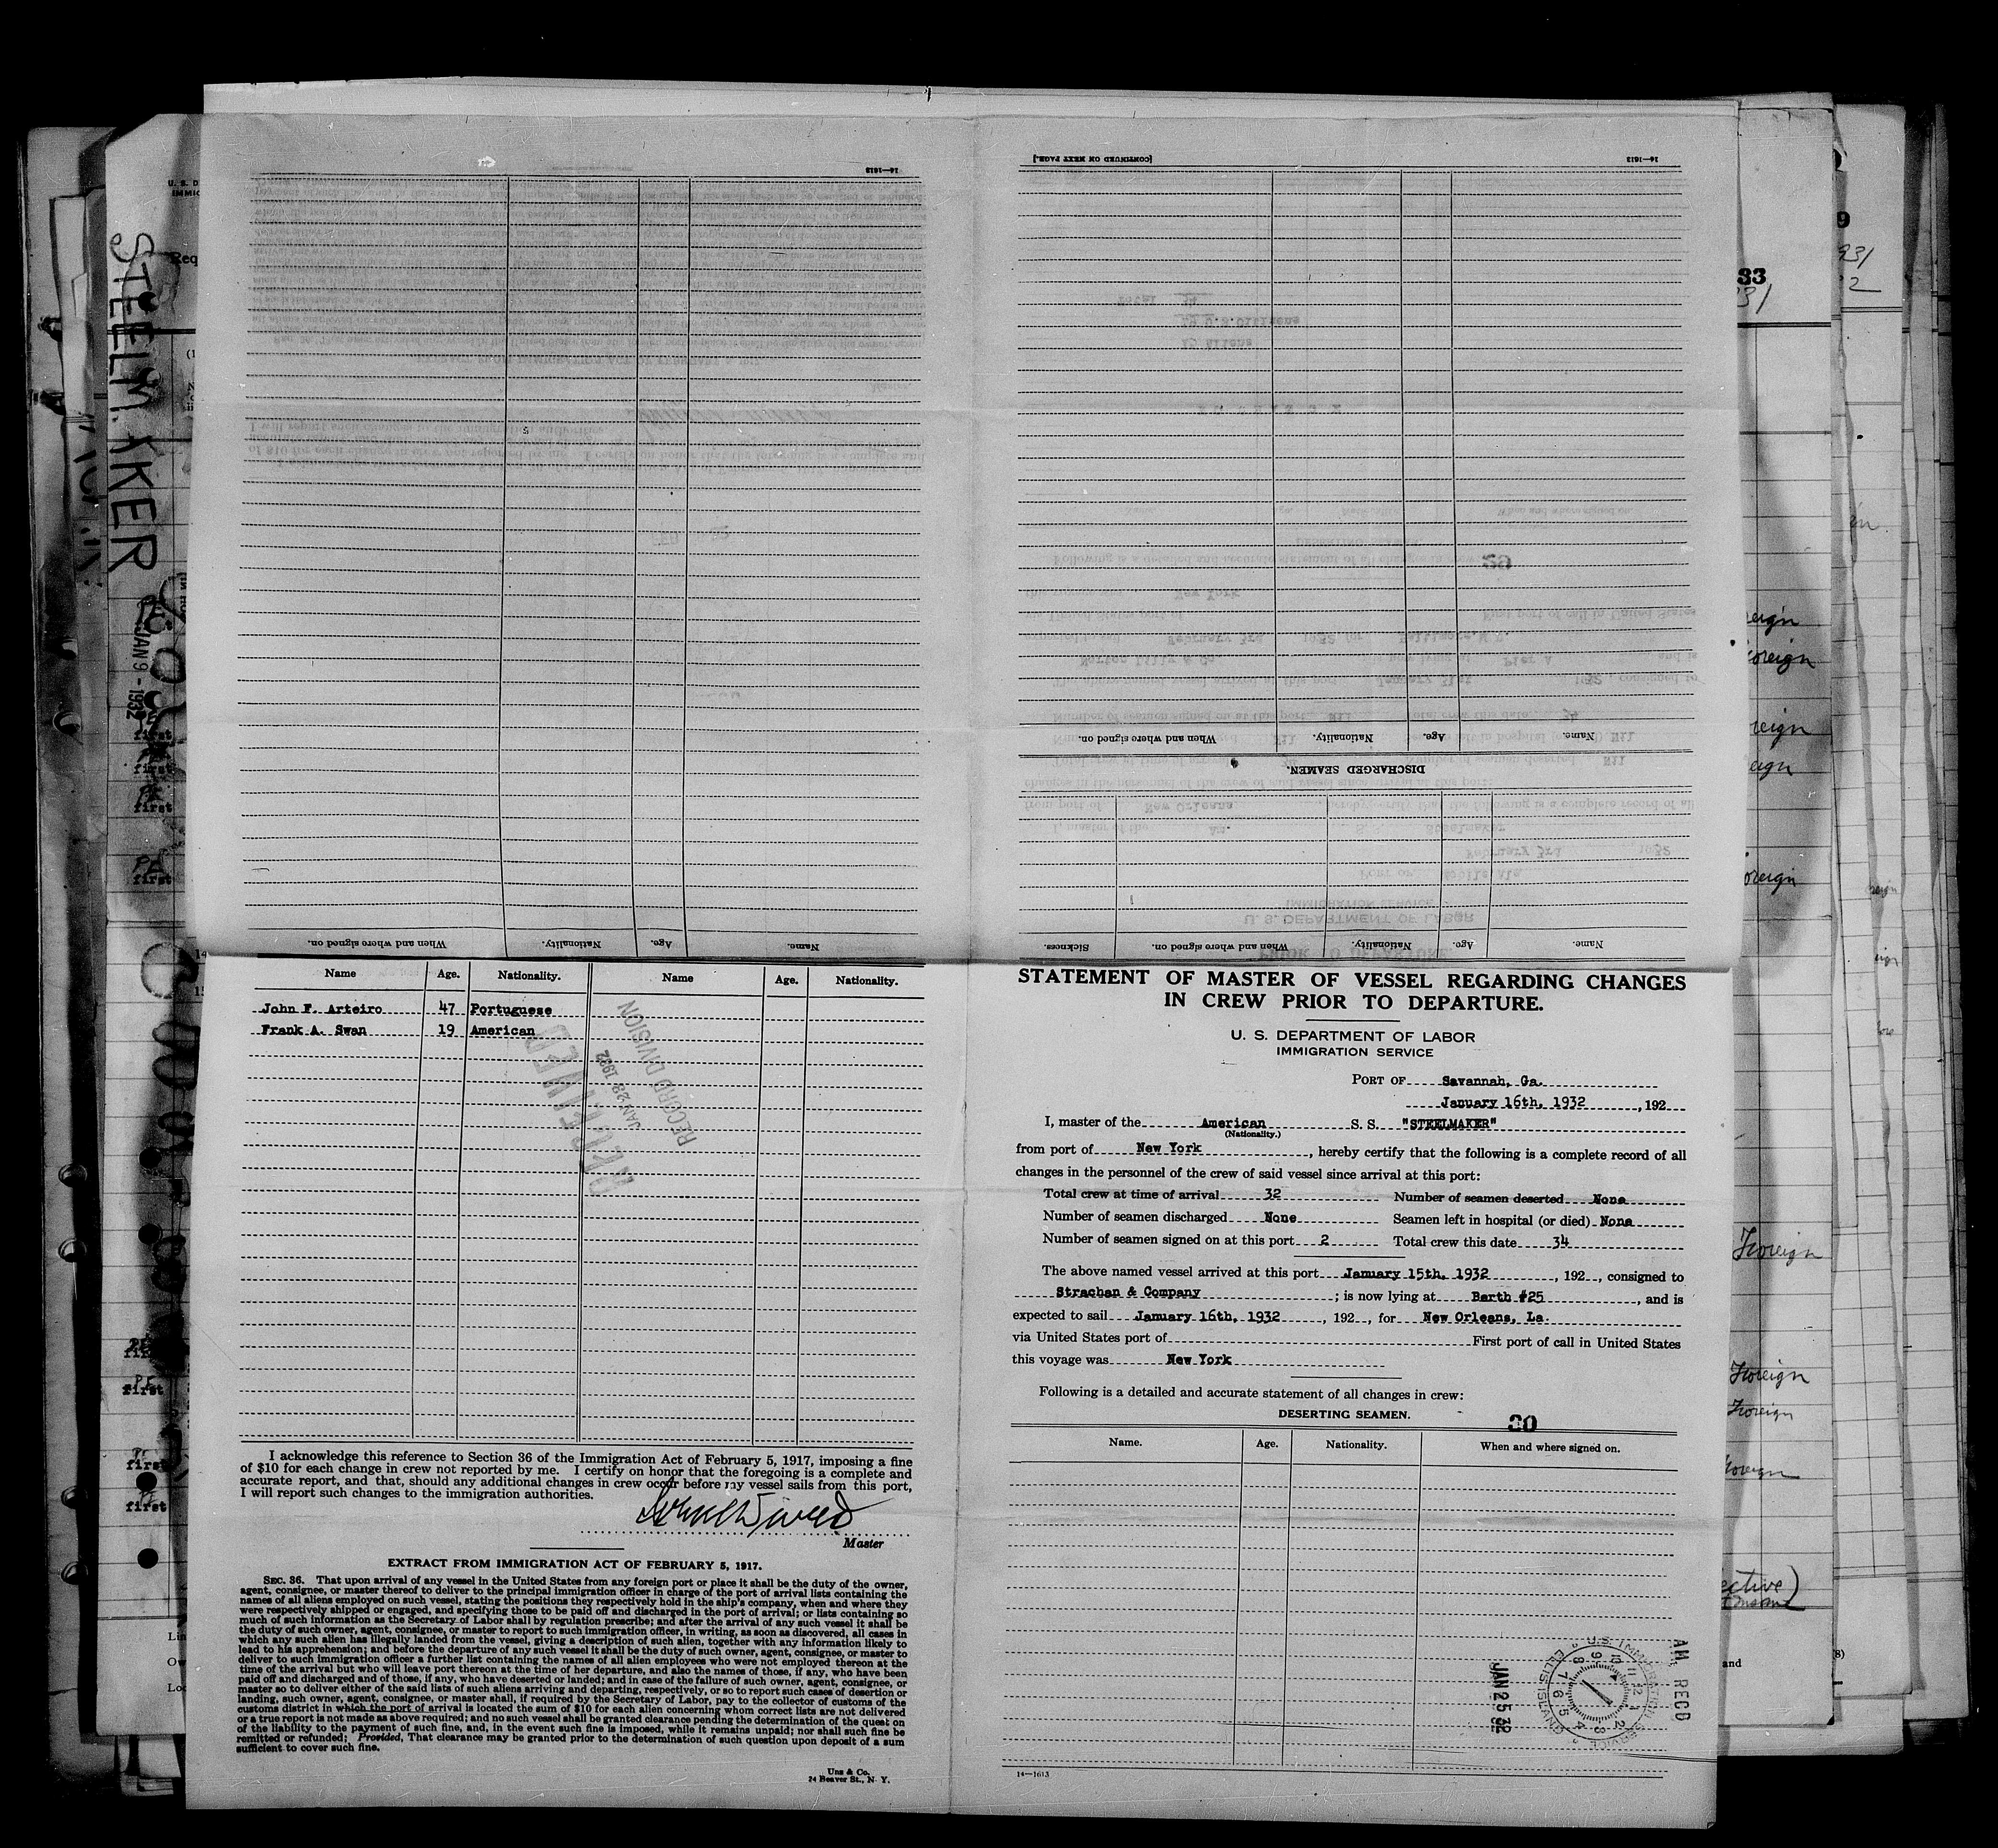 STEELMAKER
JAN 9 - 1932
14—1613
When and where signed on.
Nationality.
Age.
Name.
[CONTINUED ON NEXT PAGE.]
14—1613
Name.
Age.
Nationality.
When and where signed on.
DISCHARGED SEAMEN.
Sickness.
When and where signed on.
Nationality.
Age.
Name.
Name Age. Nationality. Name Age. Nationality.
John F. Arteiro 47 Portuguese
Frank A. Swan 19 American
RECEIVED
JAN 28 1932
RECORD DIVISION
I acknowledge this reference to Section 36 of the Immigration Act of February 5, 1917, imposing a fine
of $10 for each change in crew not reported by me. I certify on honor that the foregoing is a complete and
accurate report, and that, should any additional changes in crew occur before my vessel sails from this port,
I will report such changes to the immigration authorities.
Master
EXTRACT FROM IMMIGRATION ACT OF FEBRUARY 5, 1917.
SEC. 36. That upon arrival of any vessel in the United States from any foreign port or place it shall be the duty of the owner,
agent, consignee, or master thereof to deliver to the principal immigration officer in charge of the port of arrival lists containing the
names of all aliens employed on such vessel, stating the positions they respectively hold in the ship's company, when and where they
were respectively shipped or engaged, and specifying those to be paid off and discharged in the port of arrival; or lists containing so
much of such information as the Secretary of Labor shall by regulation prescribe; and after the arrival of any such vessel it shall be
the duty of such owner, agent, consignee, or master to report to such immigration officer, in writing, as soon as discovered, all cases in
which any such alien has illegally landed from the vessel, giving a description of such alien, together with any information likely to
lead to his apprehension; and before the departure of any such vessel it shall be the duty of such owner, agent, consignee, or master to
deliver to such immigration officer a further list containing the names of all alien employees who were not employed thereon at the
time of the arrival but who will leave port thereon at the time of her departure, and also the names of those, if any, who have been
paid off and discharged and of those, if any, who have deserted or landed; and in case of the failure of such owner, agent, consignee, or
master so to deliver either of the said lists of such aliens arriving and departing, respectively, or so to report such cases of desertion or
landing, such owner, agent, consignee, or master shall, if required by the Secretary of Labor, pay to the collector of customs of the
customs district in which the port of arrival is located the sum of $10 for each alien concerning whom correct lists are not delivered
or a true report is not made as above required; and no such vessel shall be granted clearance pending the determination of the quest on
of the liability to the payment of such fine, and, in the event such fine is imposed, while it remains unpaid; nor shall such fine be
remitted or refunded; Provided, That clearance may be granted prior to the determination of such question upon deposit of a sum
sufficient to cover such fine.
Unz & Co.
24 Beaver St., N. Y.
STATEMENT OF MASTER OF VESSEL REGARDING CHANGES
IN CREW PRIOR TO DEPARTURE.
U. S. DEPARTMENT OF LABOR
IMMIGRATION SERVICE
PORT OF Savannah, Ga.
January 16th, 1932, 192
I, master of the American S. S. "STEELMAKER"
(Nationality.)
from port of New York, hereby certify that the following is a complete record of all
changes in the personnel of the crew of said vessel since arrival at this port:
Total crew at time of arrival 32 Number of seamen deserted None
Number of seamen discharged None Seamen left in hospital (or died) None
Number of seamen signed on at this port 2 Total crew this date 34
The above named vessel arrived at this port January 15th, 1932, 192, consigned to
Strachan & Company; is now lying at Berth #25, and is
expected to sail January 16th, 1932, 192, for New Orleans, La.
via United States port of First port of call in United States
this voyage was New York
Following is a detailed and accurate statement of all changes in crew:
DESERTING SEAMEN.
30
Name. Age. Nationality. When and where signed on.
JAN 25 32
U. S. IMMIGRATION SERVICE
ELLIS ISLAND
AM RECD
14—1613
33
Foreign
Foreign
Foreign